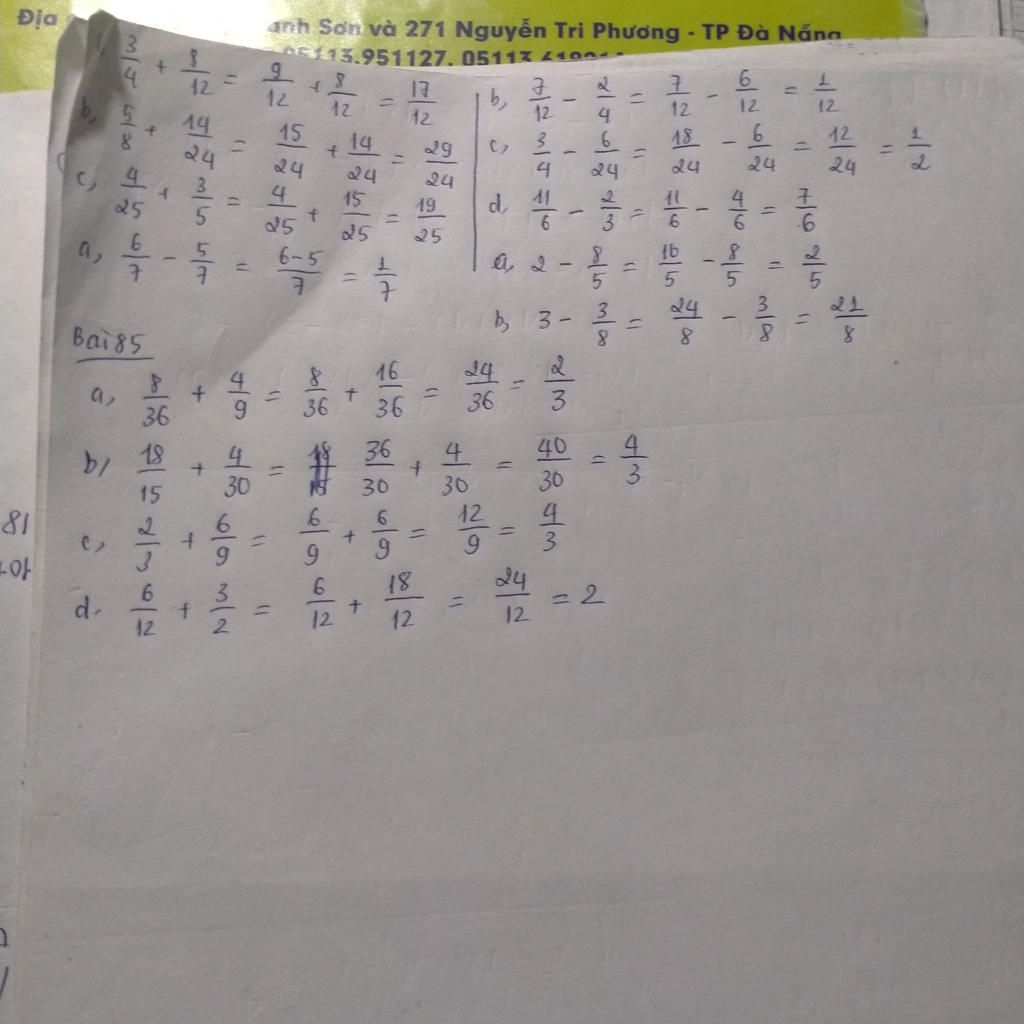 Địa
anh Sơn và 271 Nguyễn Tri Phương - TP Đà Nẵng
05113.951127. 05113
3/4 + 8/12 = 9/12 + 8/12 = 17/12
b, 5/8 + 14/24 = 15/24 + 14/24 = 29/24
c, 4/25 + 3/5 = 4/25 + 15/25 = 19/25
a, 6/7 - 5/7 = 6-5/7 = 1/7
b, 7/12 - 2/4 = 7/12 - 6/12 = 1/12
c, 3/4 - 6/24 = 18/24 - 6/24 = 12/24 = 1/2
d, 11/6 - 2/3 = 11/6 - 4/6 = 7/6
a, 2 - 8/5 = 10/5 - 8/5 = 2/5
b, 3 - 3/8 = 24/8 - 3/8 = 21/8
Bài 85
a, 8/36 + 4/9 = 8/36 + 16/36 = 24/36 = 2/3
b, 18/15 + 4/30 = 36/30 + 4/30 = 40/30 = 4/3
c, 2/3 + 6/9 = 6/9 + 6/9 = 12/9 = 4/3
d. 6/12 + 3/2 = 6/12 + 18/12 = 24/12 = 2